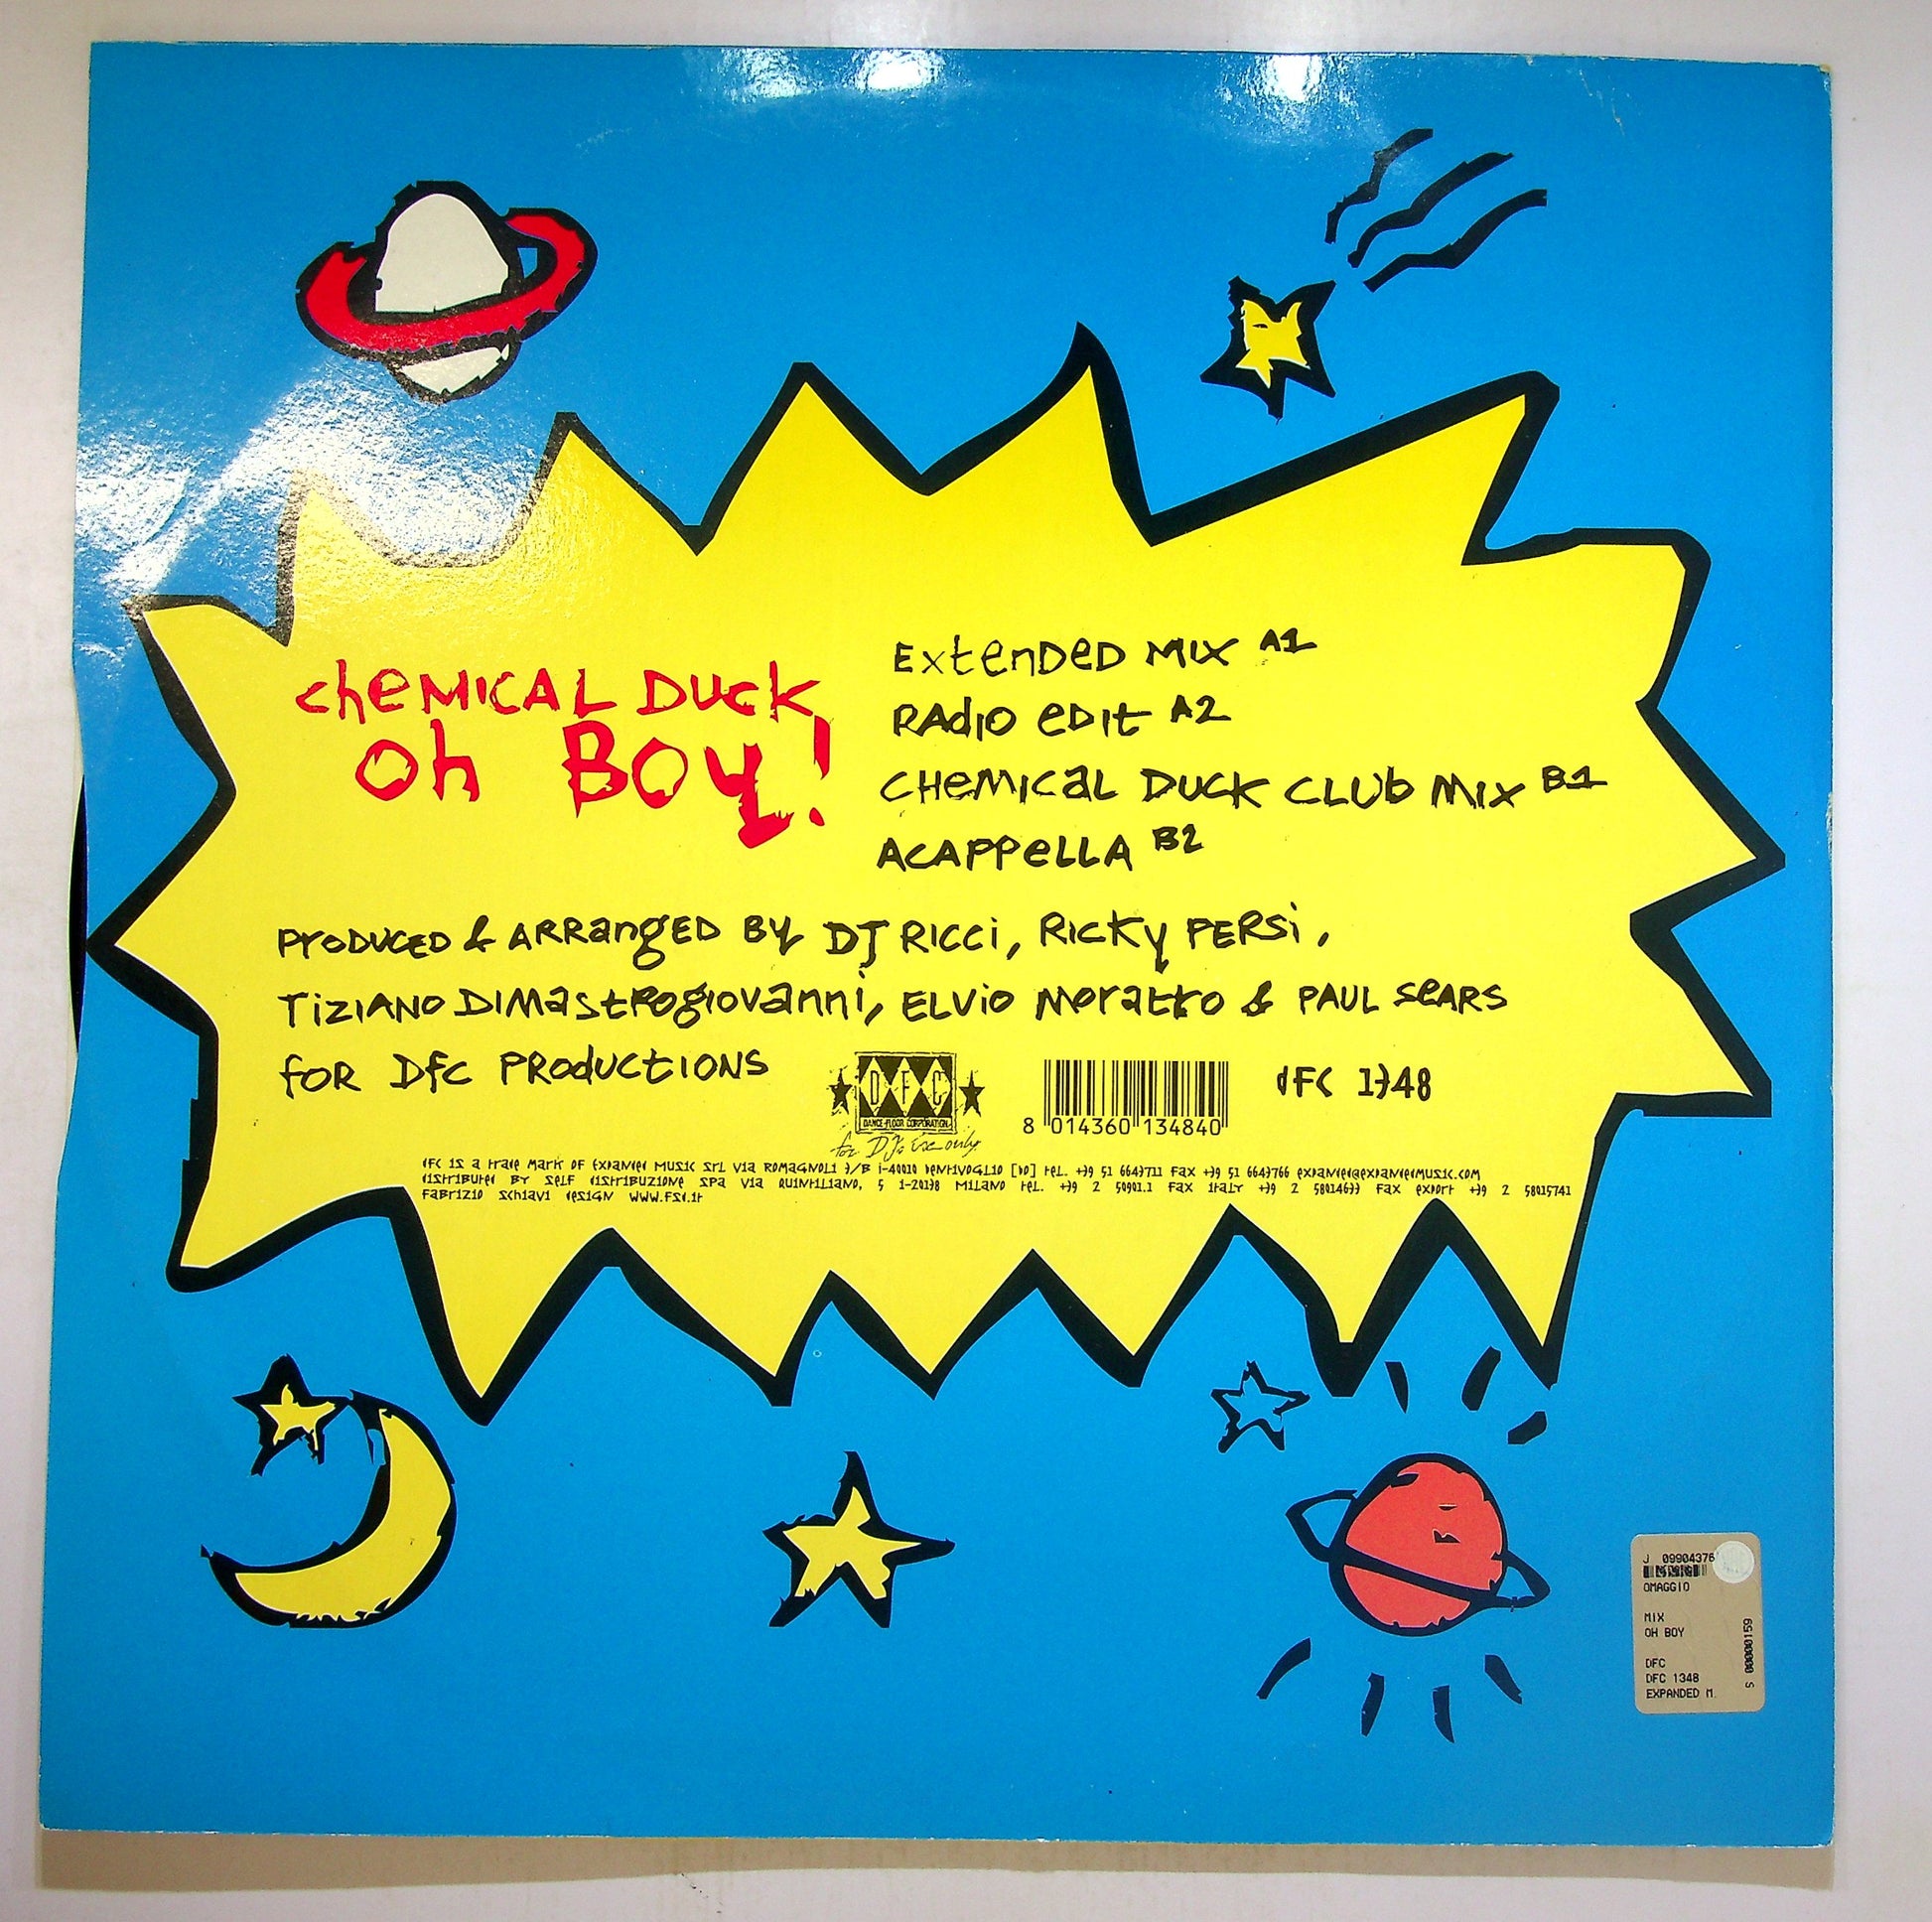 cheMICAL DUck
oh Boy!
ExtenDeD MIX A1
RAdio eDit A2
CHeMical DUCK CLUb MIX B1
ACAPPeLLA B2
PrODUCED & ARRangED By DJ RICCi, RICKy PERSi,
TiZIANO DIMastROgiovanni, ELVIO Moratto & PAUL SeARS
fOR DfC PRODuctIONS
DFC
DANCE FLOOR CORPORATION
for DJs Use only
8 014360 134840
dFC 1348
dFC IS A trade Mark OF Expanded MUSIC Srl VIA ROMAGNOLI 3/B I-40010 BENTIVOGLIO [BO] tel. +39 51 6643711 FAX +39 51 6643766 expanded@expandedmusic.com
distributed BY Self distribuzione SPA VIA QUINTILIANO, 5 I-20138 MILANO tel. +39 2 50901.1 FAX ITALY +39 2 58014633 FAX export +39 2 58015741
FABRIZIO SCHIAVI design www.fsd.it
J 09904376
OMAGGIO
MIX
OH BOY
DFC
DFC 1348
EXPANDED M.
S 00000159